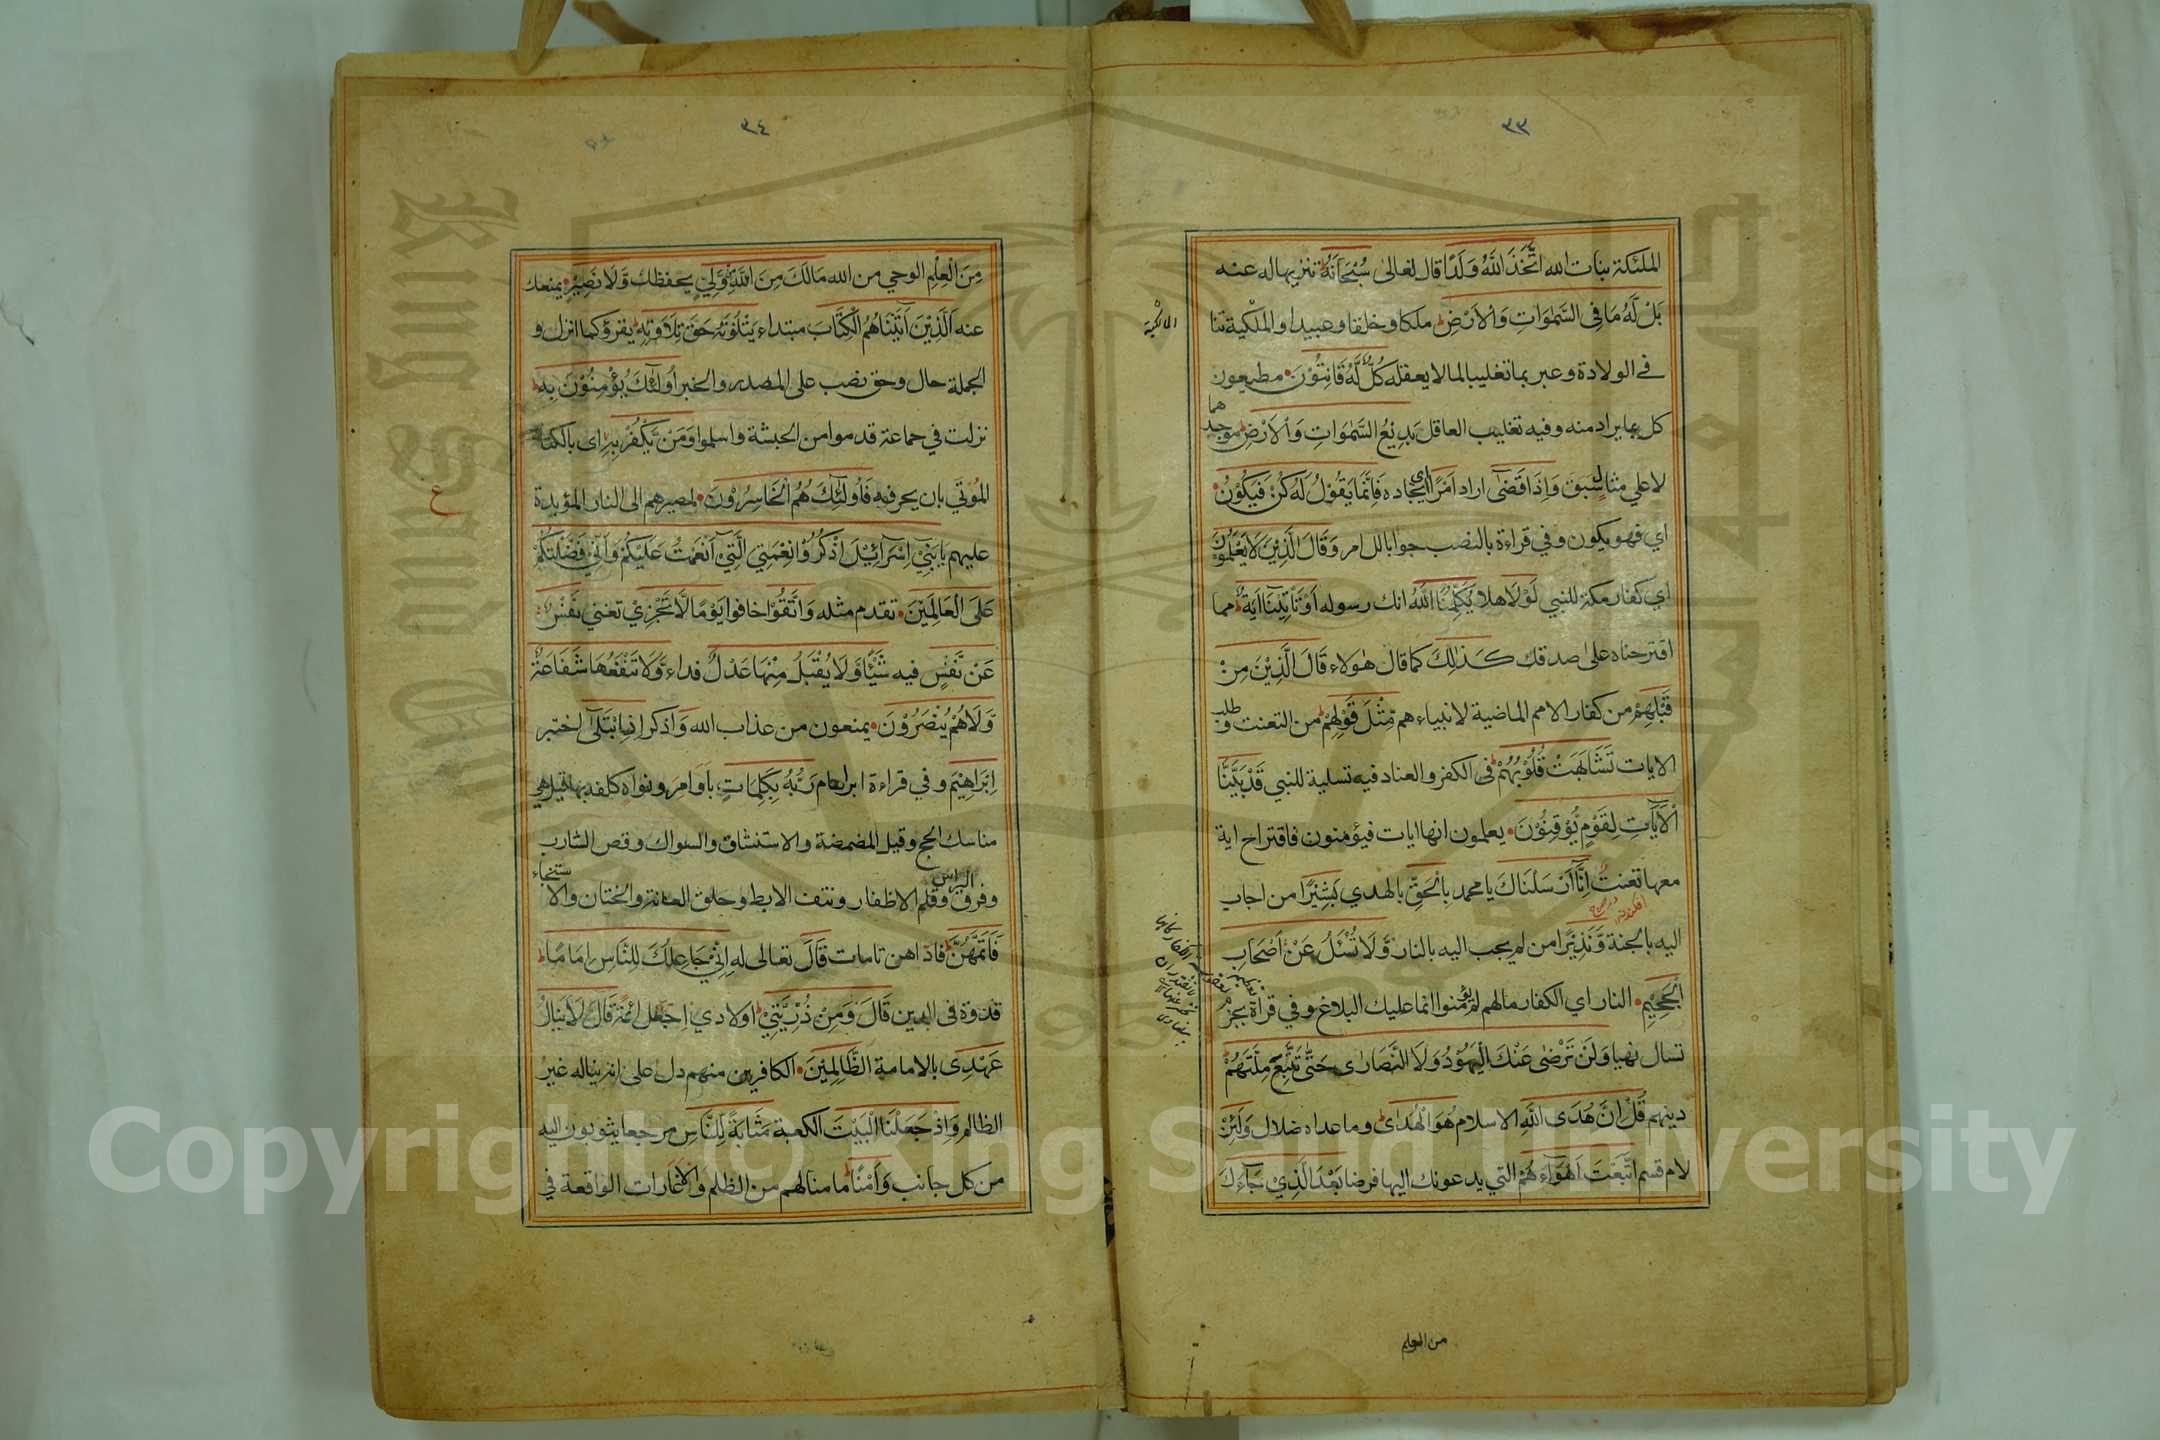 ٣٣
الملئكة بنات الله اتَّخَذَ اللَّهُ وَلَدًا قال تعالى سُبْحَانَهُ تنزيها له عنه
بَلْ لَّهُ مَا فِي السَّمٰوَاتِ وَالْاَرْضِ ملكا وخلقا وعبيدا والملكية تنا
في الولادة وعبر بما تغليبا لما لا يعقل كُلٌّ لَّهُ قَانِتُوْنَ مطيعون
كل بما يراد منه وفيه تغليب العاقل بَدِيْعُ السَّمٰوَاتِ وَالْاَرْضِ موجد
هما
لا على مثال سبق وَاِذَا قَضٰى اراد اَمْرًا اي ايجاده فَاِنَّمَا يَقُوْلُ لَهُ كُنْ فَيَكُوْنُ
اي فهو يكون وفي قراءة بالنصب جوابا للامر وَقَالَ الَّذِيْنَ لَا يَعْلَمُوْنَ
اي كفار مكة للنبي لَوْلَا هلا يُكَلِّمُنَا اللّٰهُ انك رسوله اَوْ تَاْتِيْنَا اٰيَةٌ مما
اقترحناه على صدقك كَذٰلِكَ كما قال هؤلاء قَالَ الَّذِيْنَ مِنْ
قَبْلِهِمْ من كفار الامم الماضية لانبياءهم مِّثْلَ قَوْلِهِمْ من التعنت وطلب
الايات تَشَابَهَتْ قُلُوْبُهُمْ في الكفر والعناد فيه تسلية للنبي قَدْ بَيَّنَّا
الْاٰيَاتِ لِقَوْمٍ يُّوْقِنُوْنَ يعلمون انها ايات فيؤمنون فاقتراح اية
معها تعنت اِنَّا اَرْسَلْنَاكَ يا محمد بِالْحَقِّ بالهدى بَشِيْرًا من اجاب
اليه بالجنة وَّنَذِيْرًا من لم يجب اليه بالنار وَّلَا تُسْئَلُ عَنْ اَصْحَابِ
الْجَحِيْمِ النار اي الكفار مالهم لم يؤمنوا انما عليك البلاغ وفي قراءة بجزم
تسال نهيا وَلَنْ تَرْضٰى عَنْكَ الْيَهُوْدُ وَلَا النَّصَارٰى حَتّٰى تَتَّبِعَ مِلَّتَهُمْ
دينهم قُلْ اِنَّ هُدَى اللّٰهِ الاسلام هُوَ الْهُدٰى وما عداه ضلال وَلَئِنْ
لام قسم اتَّبَعْتَ اَهْوَآءَهُمْ التي يدعونك اليها فرضا بَعْدَ الَّذِيْ جَآءَكَ
من العلم
٣٤
مِنَ الْعِلْمِ الوحي من الله مَالَكَ مِنَ اللّٰهِ مِنْ وَّلِيٍّ يحفظك وَّلَا نَصِيْرٍ يمنعك
عنه اَلَّذِيْنَ اٰتَيْنَاهُمُ الْكِتَابَ مبتداء يَتْلُوْنَهُ حَقَّ تِلَاوَتِهٖ يقرؤنه كما انزل و
الجملة حال وحق نصب على المصدر والخبر اُولٰئِكَ يُؤْمِنُوْنَ بِهٖ
نزلت في جماعة قدموا من الحبشة واسلموا وَمَنْ يَّكْفُرْ بِهٖ اي بالكتاب
المؤتى بان يحرفه فَاُولٰٓئِكَ هُمُ الْخَاسِرُوْنَ لمصيرهم الى النار المؤبدة
عليهم يَا بَنِيْٓ اِسْرَآئِيْلَ اذْكُرُوْا نِعْمَتِيَ الَّتِيْٓ اَنْعَمْتُ عَلَيْكُمْ وَاَنِّيْ فَضَّلْتُكُمْ
عَلَى الْعَالَمِيْنَ تقدم مثله وَاتَّقُوْا خافوا يَوْمًا لَّا تَجْزِيْ تغني نَفْسٌ
عَنْ نَّفْسٍ فيه شَيْئًا وَّلَا يُقْبَلُ مِنْهَا عَدْلٌ فداء وَّلَا تَنْفَعُهَا شَفَاعَةٌ
وَّلَا هُمْ يُنْصَرُوْنَ يمنعون من عذاب الله وَ اذكر اِذِ ابْتَلٰٓى اختبر
اِبْرَاهِيْمَ وفي قراءة ابراهام رَبُّهُ بِكَلِمَاتٍ باوامر ونواه كلفه بها قيل هي
مناسك الحج وقيل المضمضة والاستنشاق والسواك وقص الشارب
وفرق الراس وقلم الاظفار ونتف الابط وحلق العانة والختان والا
ستنجاء
فَاَتَمَّهُنَّ فاداهن تامات قَالَ تعالى له اِنِّيْ جَاعِلُكَ لِلنَّاسِ اِمَامًا
قدوة في الدين قَالَ وَمِنْ ذُرِّيَّتِيْ اولادي اجعل ائمة قَالَ لَا يَنَالُ
عَهْدِى بالامامة الظَّالِمِيْنَ الكافرين منهم دل على انه يناله غير
الظالم وَاِذْ جَعَلْنَا الْبَيْتَ الكعبة مَثَابَةً لِّلنَّاسِ مرجعا يثوبون اليه
من كل جانب وَاَمْنًا مامنا لهم من الظلم والاغارات الواقعة في
ع
King Saud University
Copyright © King Saud University
1957